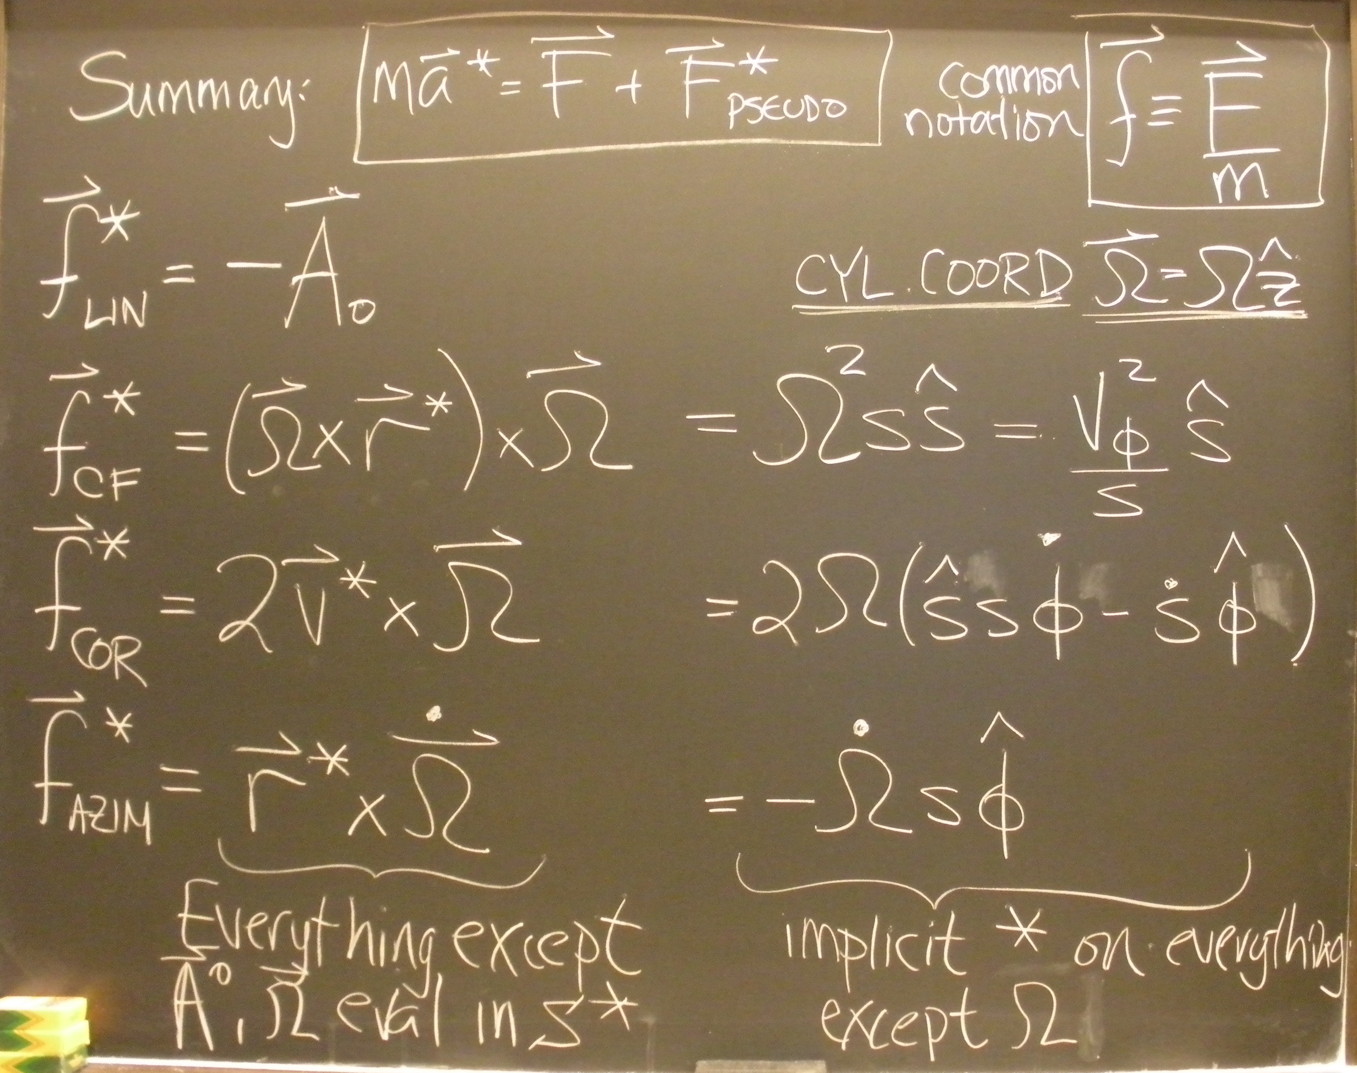 Summary: m\vec{a}^* = \vec{F} + \vec{F}^*_{PSEUDO} common notation \vec{f} ≡ \frac{\vec{F}}{m}
\vec{f}^*_{LIN} = -\vec{A}_0
CYL. COORD \vec{Ω} = Ω\hat{z}
\vec{f}^*_{CF} = (\vec{Ω} × \vec{r}^*) × \vec{Ω} = Ω^2 s\hat{s} = \frac{V_ϕ^2}{s} \hat{s}
\vec{f}^*_{COR} = 2\vec{v}^* × \vec{Ω} = 2Ω(\hat{s}s\dot{ϕ} - \dot{s}\hat{ϕ})
\vec{f}^*_{AZIM} = \vec{r}^* × \dot{\vec{Ω}} = -\dot{Ω}s\hat{ϕ}
Everything except
\vec{A}_0, \vec{Ω} eval in S*
implicit * on everything
except Ω